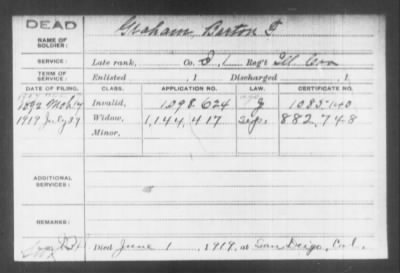 DEAD
NAME OF SOLDIER: Graham, Burton
SERVICE: Late rank, Co. I, 1 Reg't Ill. Cav
TERM OF SERVICE: Enlisted , 1 Discharged , 1
DATE OF FILING. CLASS. APPLICATION NO. LAW. CERTIFICATE NO.
1892 Mch 14 Invalid, 1098.624 G 1085.140
1919 July 29 Widow, 1,144,417 Sep. 882,748
Minor,
ADDITIONAL SERVICES:
REMARKS:
Died June 1, 1919, at San Deigo, Cal.